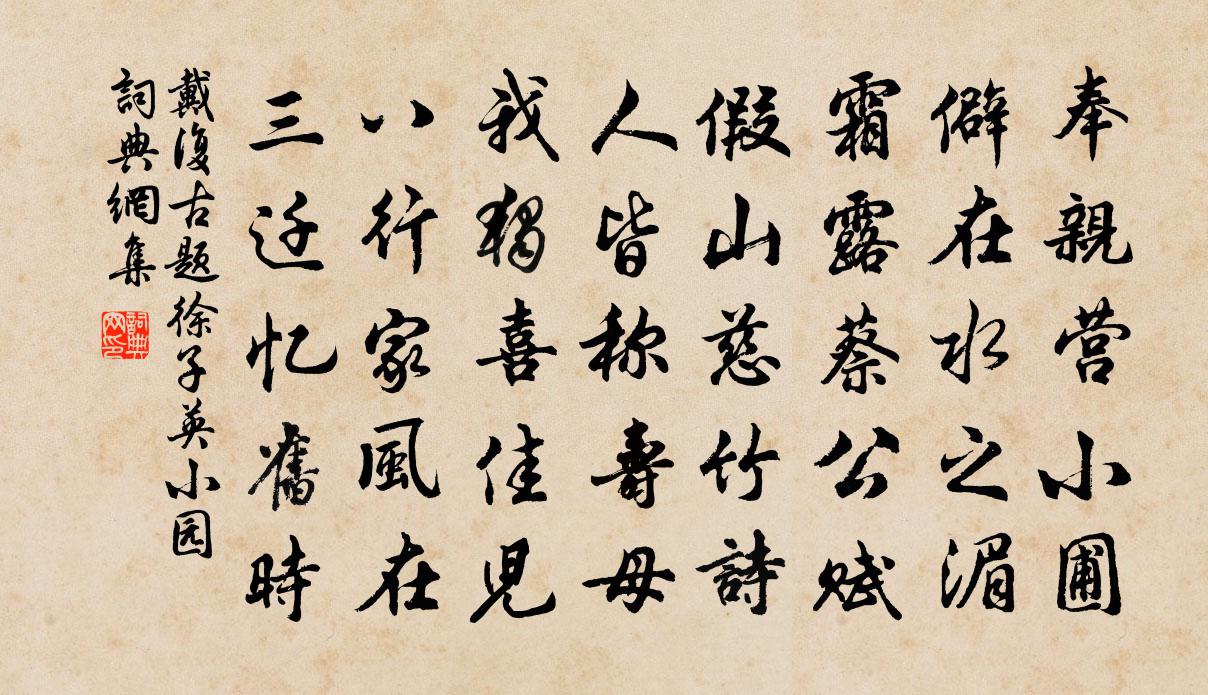 奉親营小圃
僻在水之湄
霜露蔡公赋
假山慈竹詩
人皆称壽母
我獨喜佳児
八行家風在
三迁忆舊時
戴復古题徐子英小园
詞典網集
詞典
网印